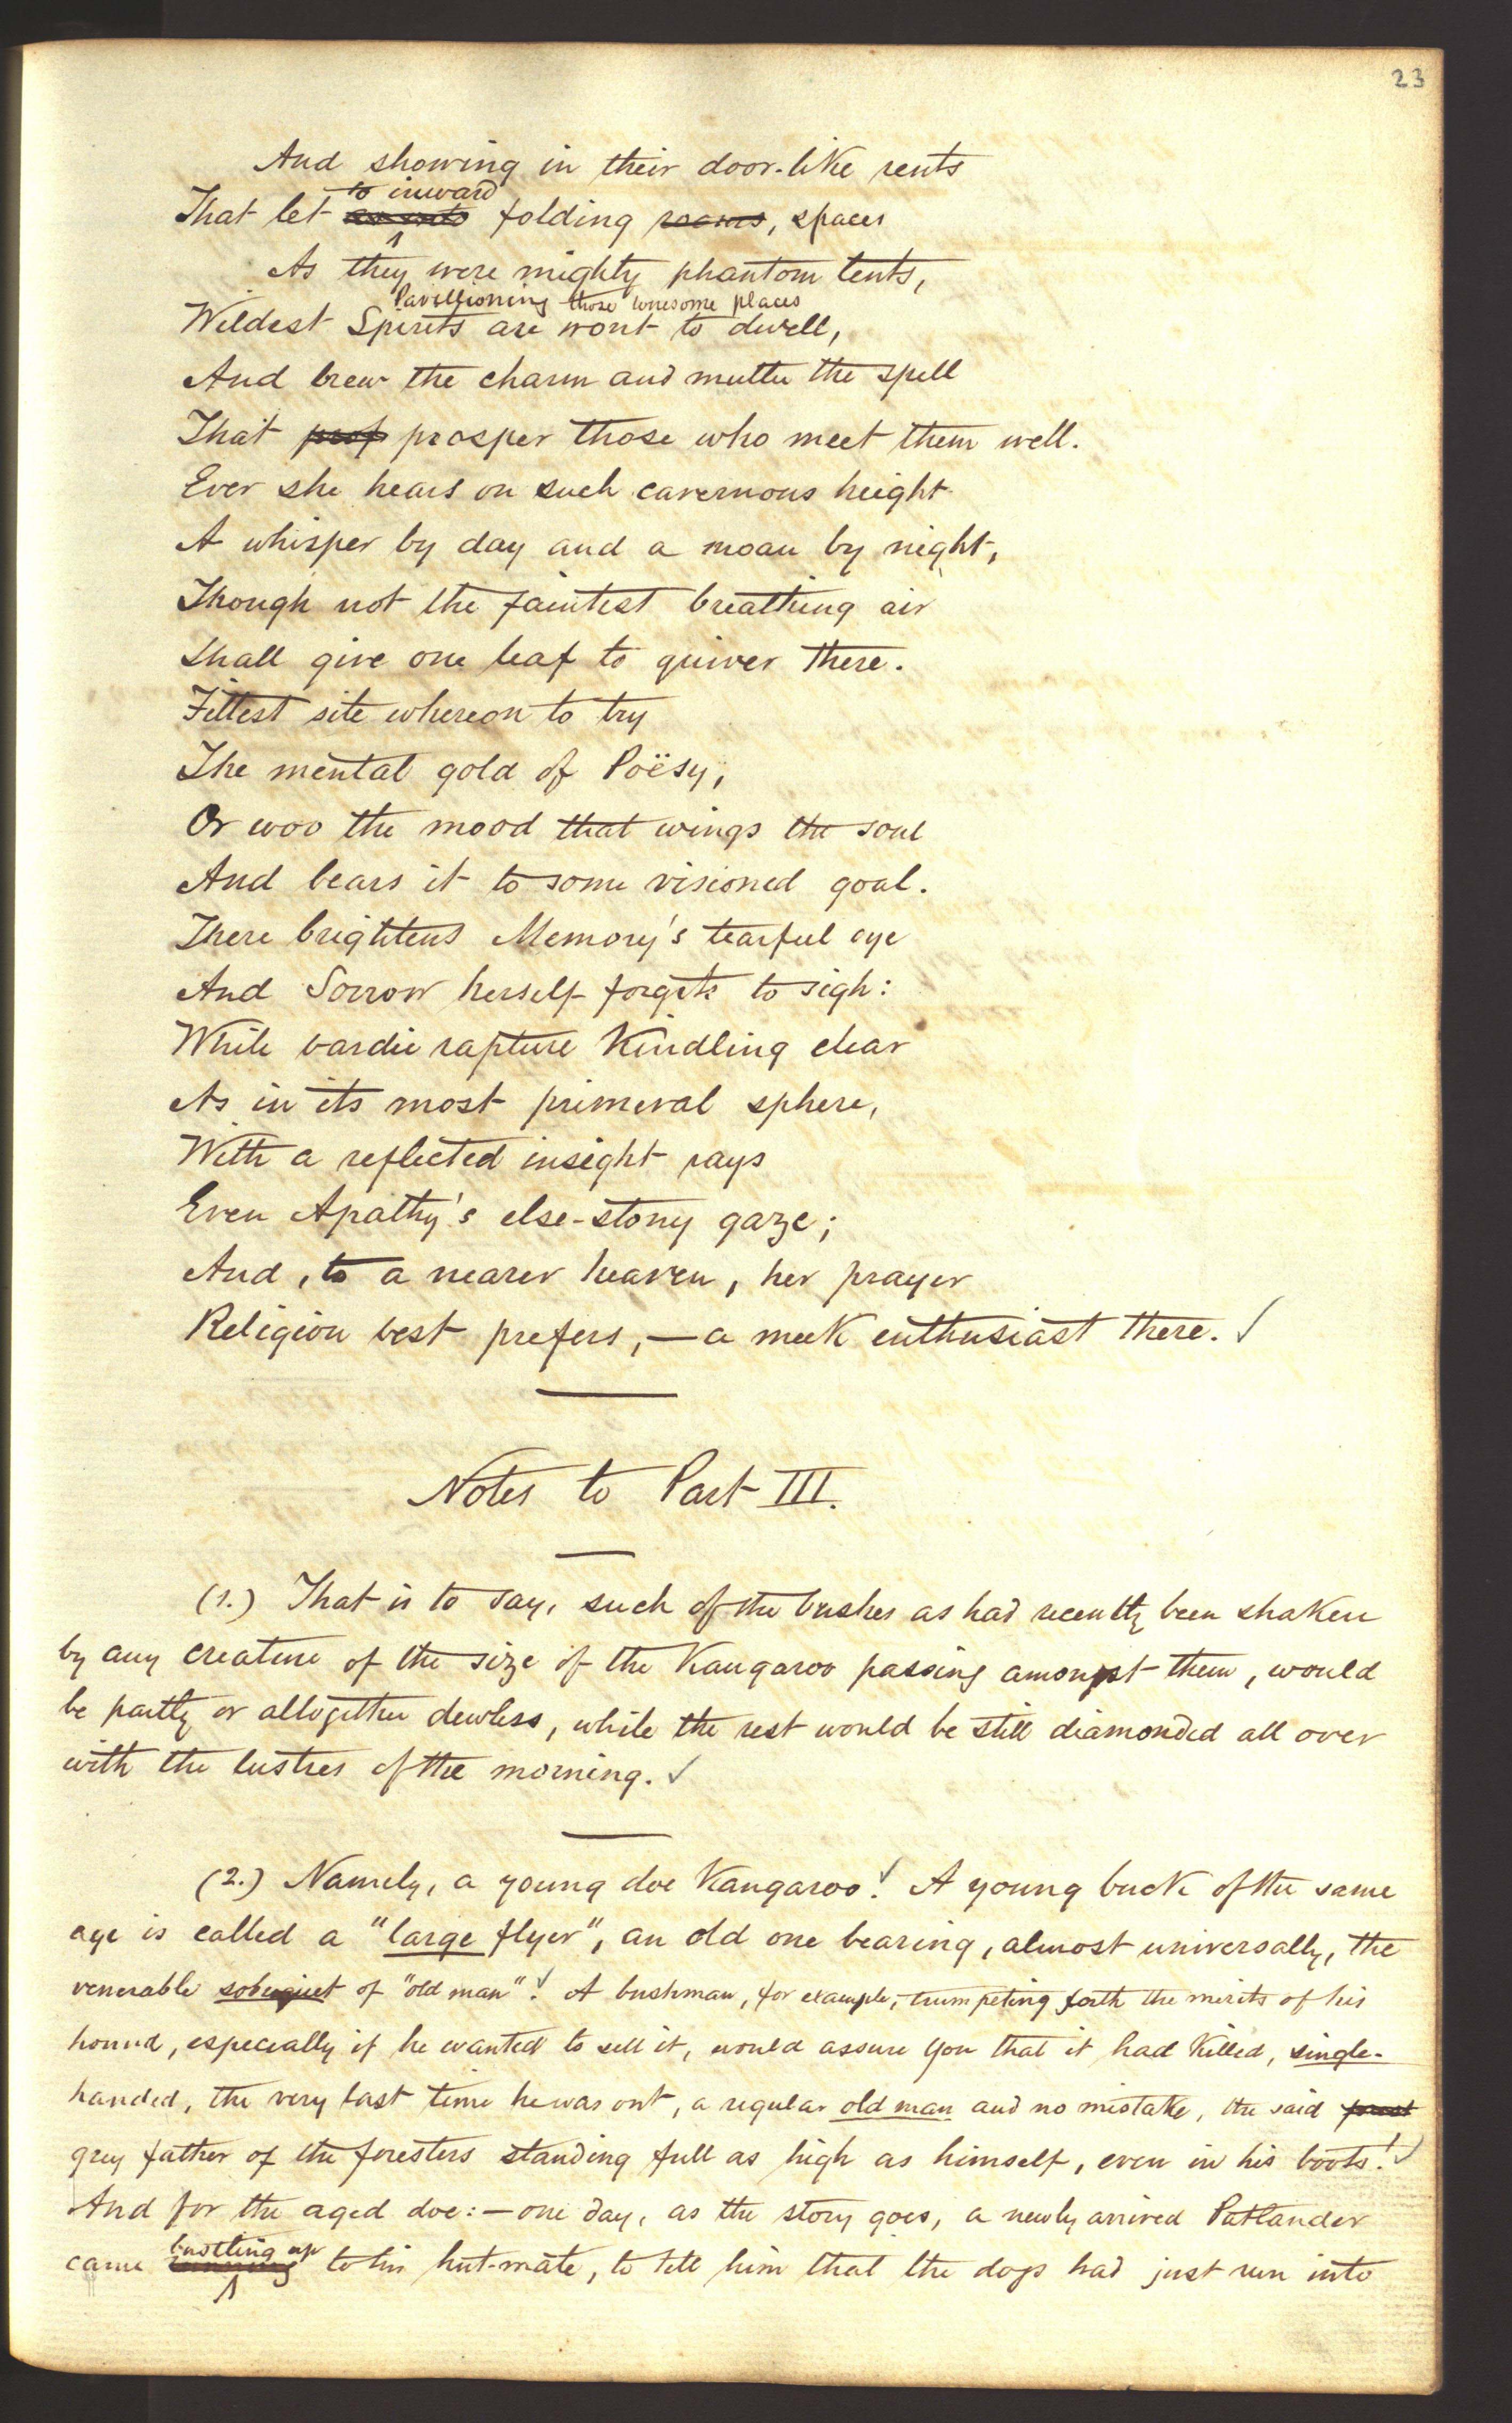 23
And showing in their door-like rents
to inward
That let folding rooms, spaces
As they were mighty phantom tents,
Pavillioning those lonesome places
Wildest Spirits are wont to dwell,
And brew the charm and mutter the spell
That prop prosper those who meet them well.
Ever she hears on such cavernous height
A whisper by day and a moan by night,
Though not the faintest breathing air
Shall give one leaf to quiver there.
Fittest site whereon to try
The mental gold of Poësy,
Or woo the mood that wings the soul
And bears it to some visioned goal.
There brightens Memory's tearful eye
And Sorrow herself forgets to sigh:
While bardic rapture kindling clear
As in its most primeval sphere,
With a reflected insight rays
Even Apathy's else-stony gaze;
And, to a nearer heaven, her prayer
Religion best prefers, — a meek enthusiast there. ✓
Notes to Part III.
(1.) That is to say, such of the bushes as had recently been shaken
by any creature of the size of the Kangaroo passing amongst them, would
be partly or altogether dewless, while the rest would be still diamonded all over
with the lustres of the morning. ✓
(2.) Namely, a young doe Kangaroo! ✓ A young buck of the same
age is called a "large flyer", an old one bearing, almost universally, the
venerable sobriquet of "old man"! ✓ A bushman, for example, trumpeting forth the merits of his
hound, especially if he wanted to sell it, would assure you that it had killed, single-
handed, the very last time he was out, a regular old man and no mistake, the said
grey father of the foresters standing full as high as himself, even in his boots! ✓
And for the aged doe: — one day, as the story goes, a newly arrived Patlander
bustling up
came to his hut-mate, to tell him that the dogs had just run into